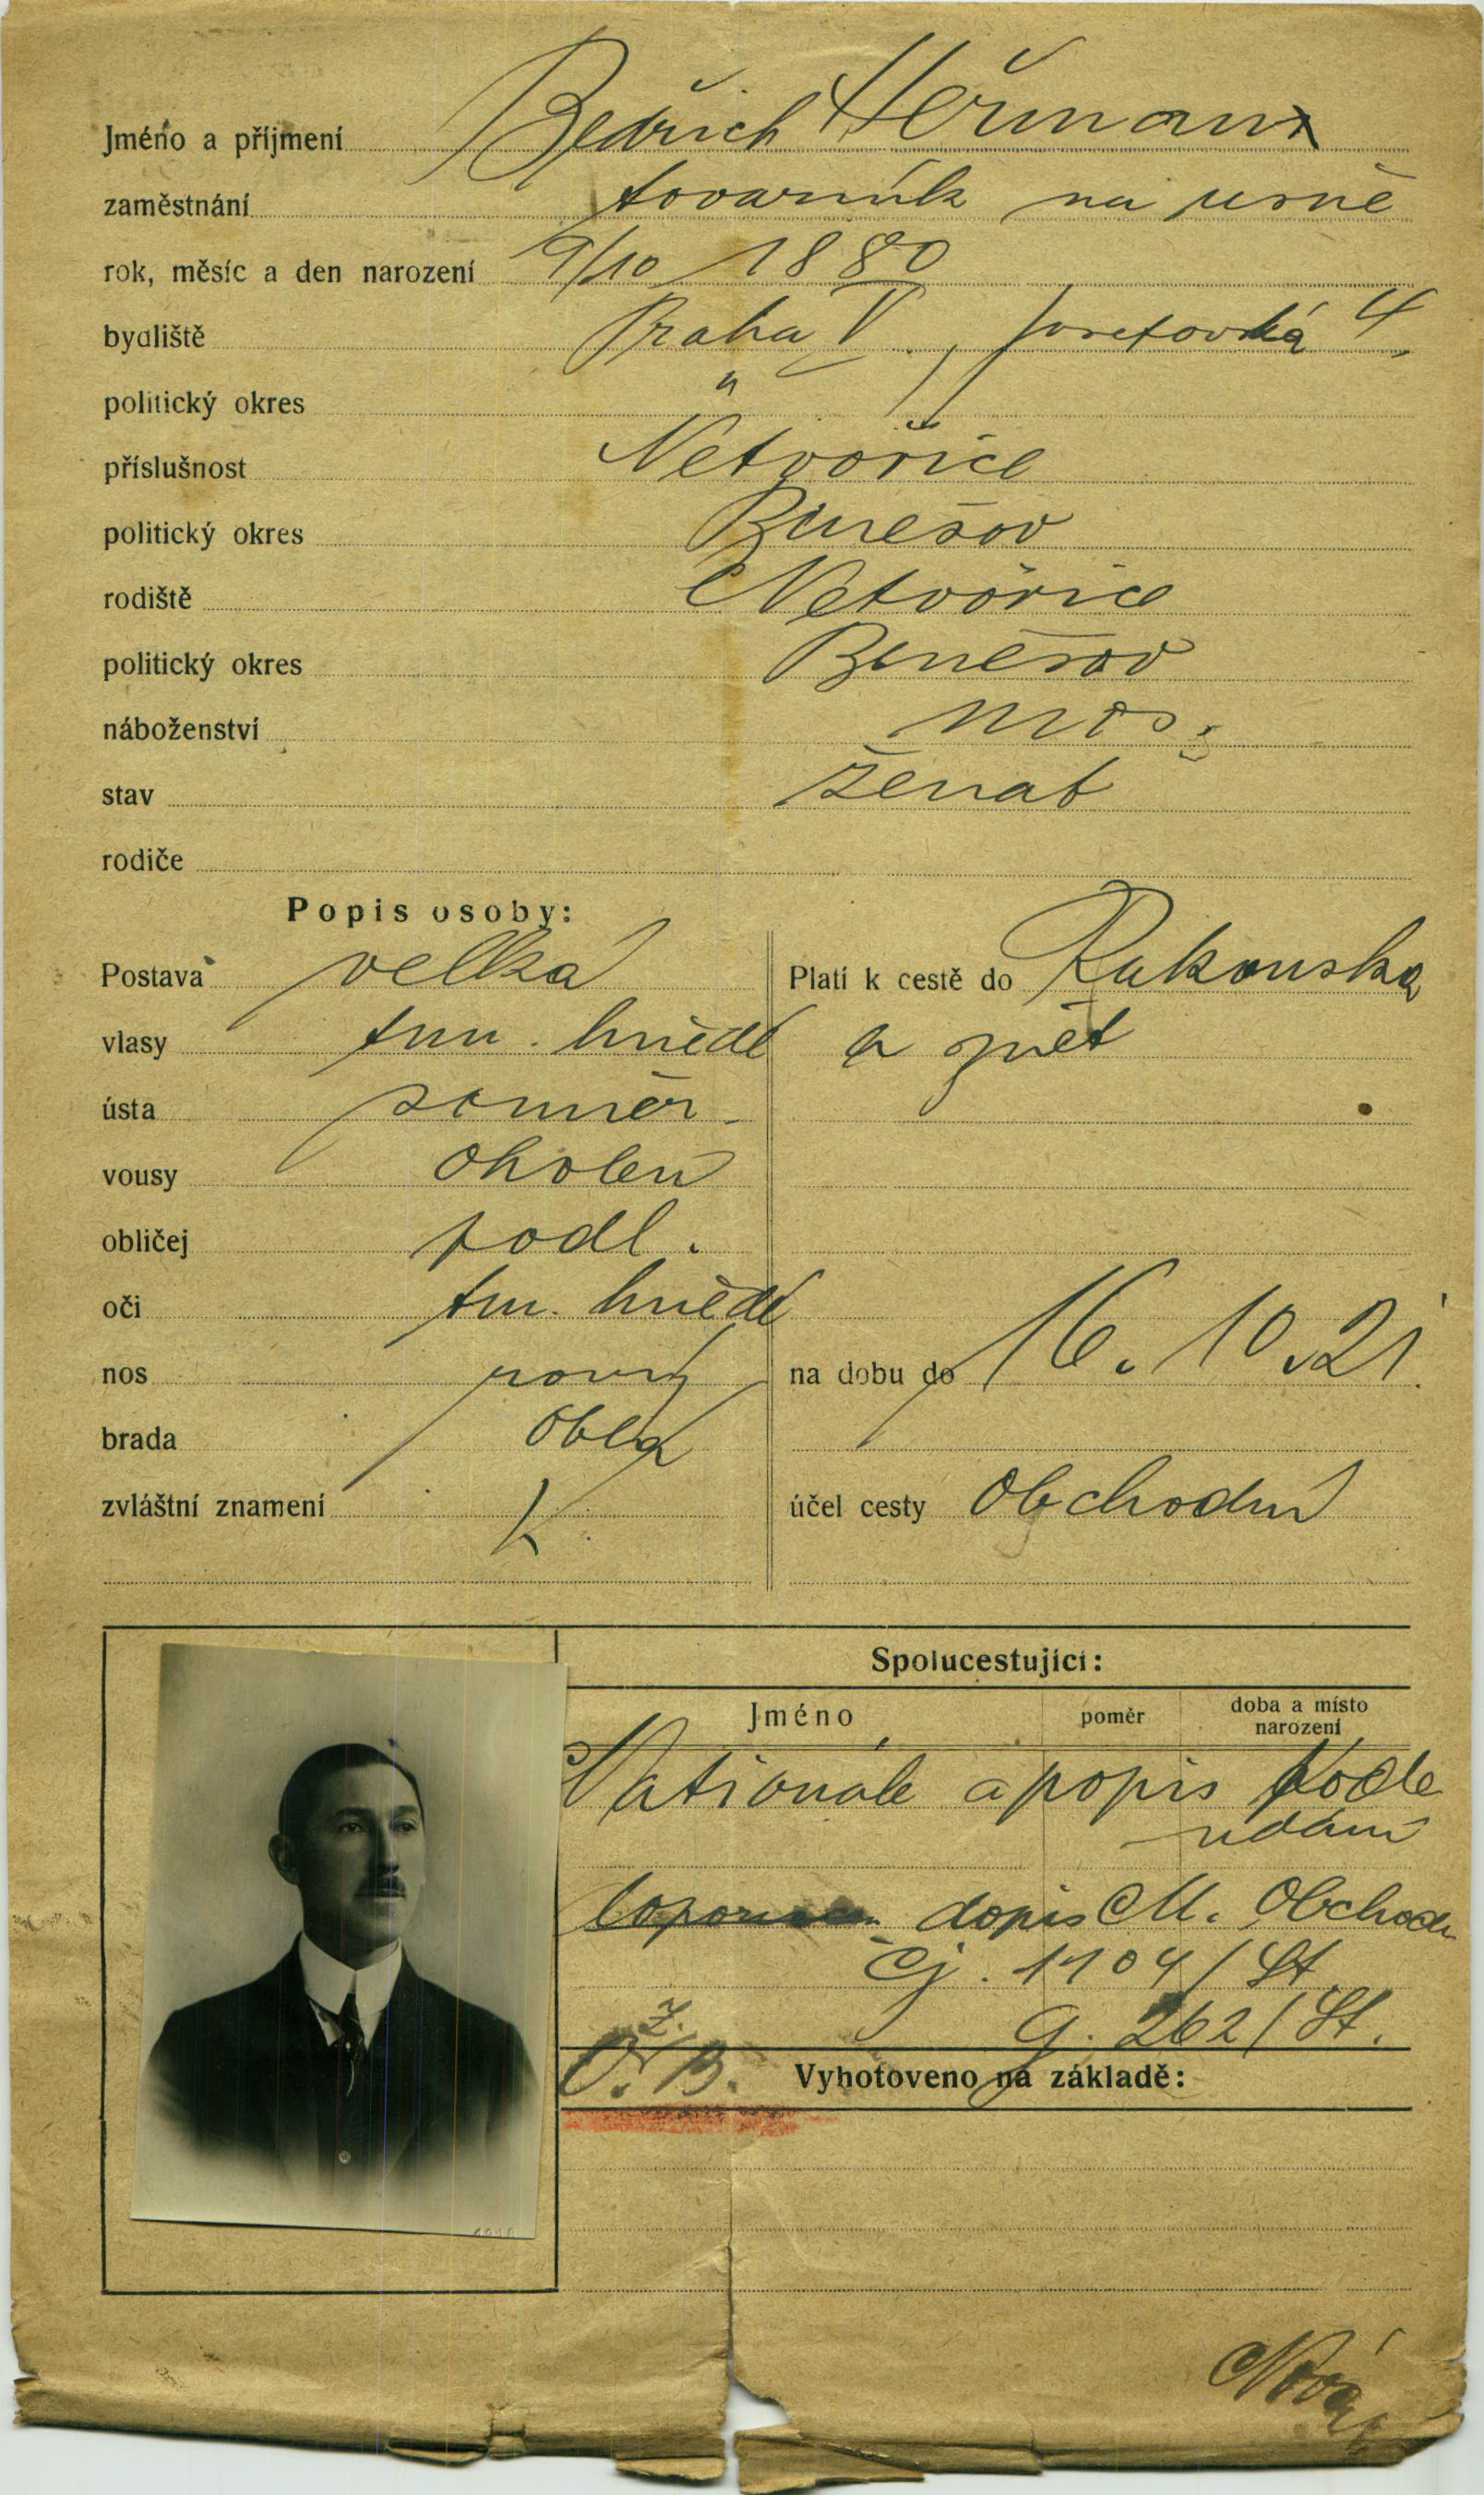 Jméno a příjmení Bedřich Heřmann
zaměstnání továrník na usně
rok, měsíc a den narození 9/10 1880
bydliště Praha V., Josefovská 4.
politický okres "
příslušnost Netvořice
politický okres Benešov
rodiště Netvořice
politický okres Benešov
náboženství mos.
stav ženat
rodiče
Popis osoby:
Postava velká
vlasy tm. hnědé
ústa souměr.
vousy oholen
obličej podl.
oči tm. hnědé
nos rovný
brada oblá
zvláštní znamení
Platí k cestě do Rakouska
a zpět
na dobu do 16. 10. 21.
účel cesty obchodní
Spolucestující:
Jméno poměr doba a místo
narození
Nationale a popis podle
udání
dopis M. Obchodu
čj. 1104/St.
9. 262/St.
Ž.
O. B. Vyhotoveno na základě: